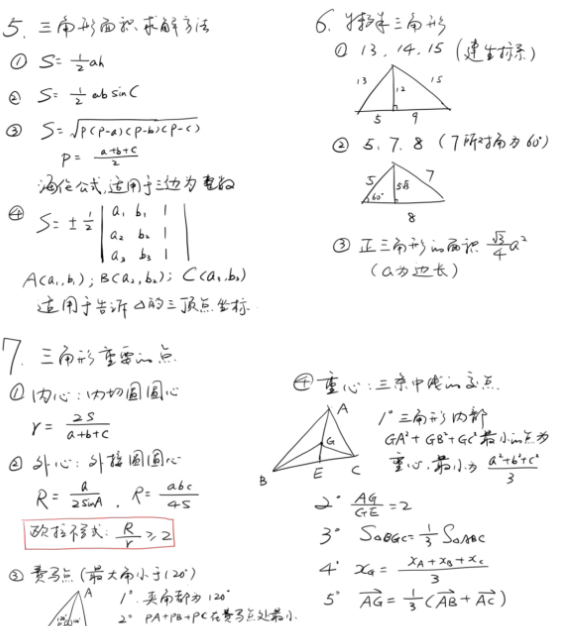 5. 三角形面积求解方法
① S=½ah
② S=½absinC
③ S=√P(P-a)(P-b)(P-c)
P=(a+b+c)/2
海伦公式,适用于三边为整数
④ S=±½ | a₁ b₁ 1 |
| a₂ b₂ 1 |
| a₃ b₃ 1 |
A(a₁,b₁); B(a₂,b₂); C(a₃,b₃)
适用于告诉△的三顶点坐标.
6. 特殊三角形
① 13. 14. 15 (建坐标系)
13 12 15
5 9
② 5. 7. 8 (7所对角为60°)
5 7
60°
8
③ 正三角形的面积 (√3/4)a²
(a为边长)
7. 三角形重要的点
① 内心:内切圆圆心
r=2S/(a+b+c)
② 外心:外接圆圆心
R=a/(2sinA), R=abc/(4S)
欧拉不等式: R/r ≥2
③ 费马点 (最大角小于120°)
A
1° 夹角都为120°
2° PA+PB+PC在费马点处最小.
④ 重心:三条中线的交点
A
G
B E C
1° 三角形内部
GA²+GB²+GC²最小的点为
重心,最小为 (a²+b²+c²)/3
2° AG/GE=2
3° S△BGC=⅓S△ABC
4° x_G=(x_A+x_B+x_C)/3
5° A⃗G⃗=⅓(A⃗B⃗+A⃗C⃗)